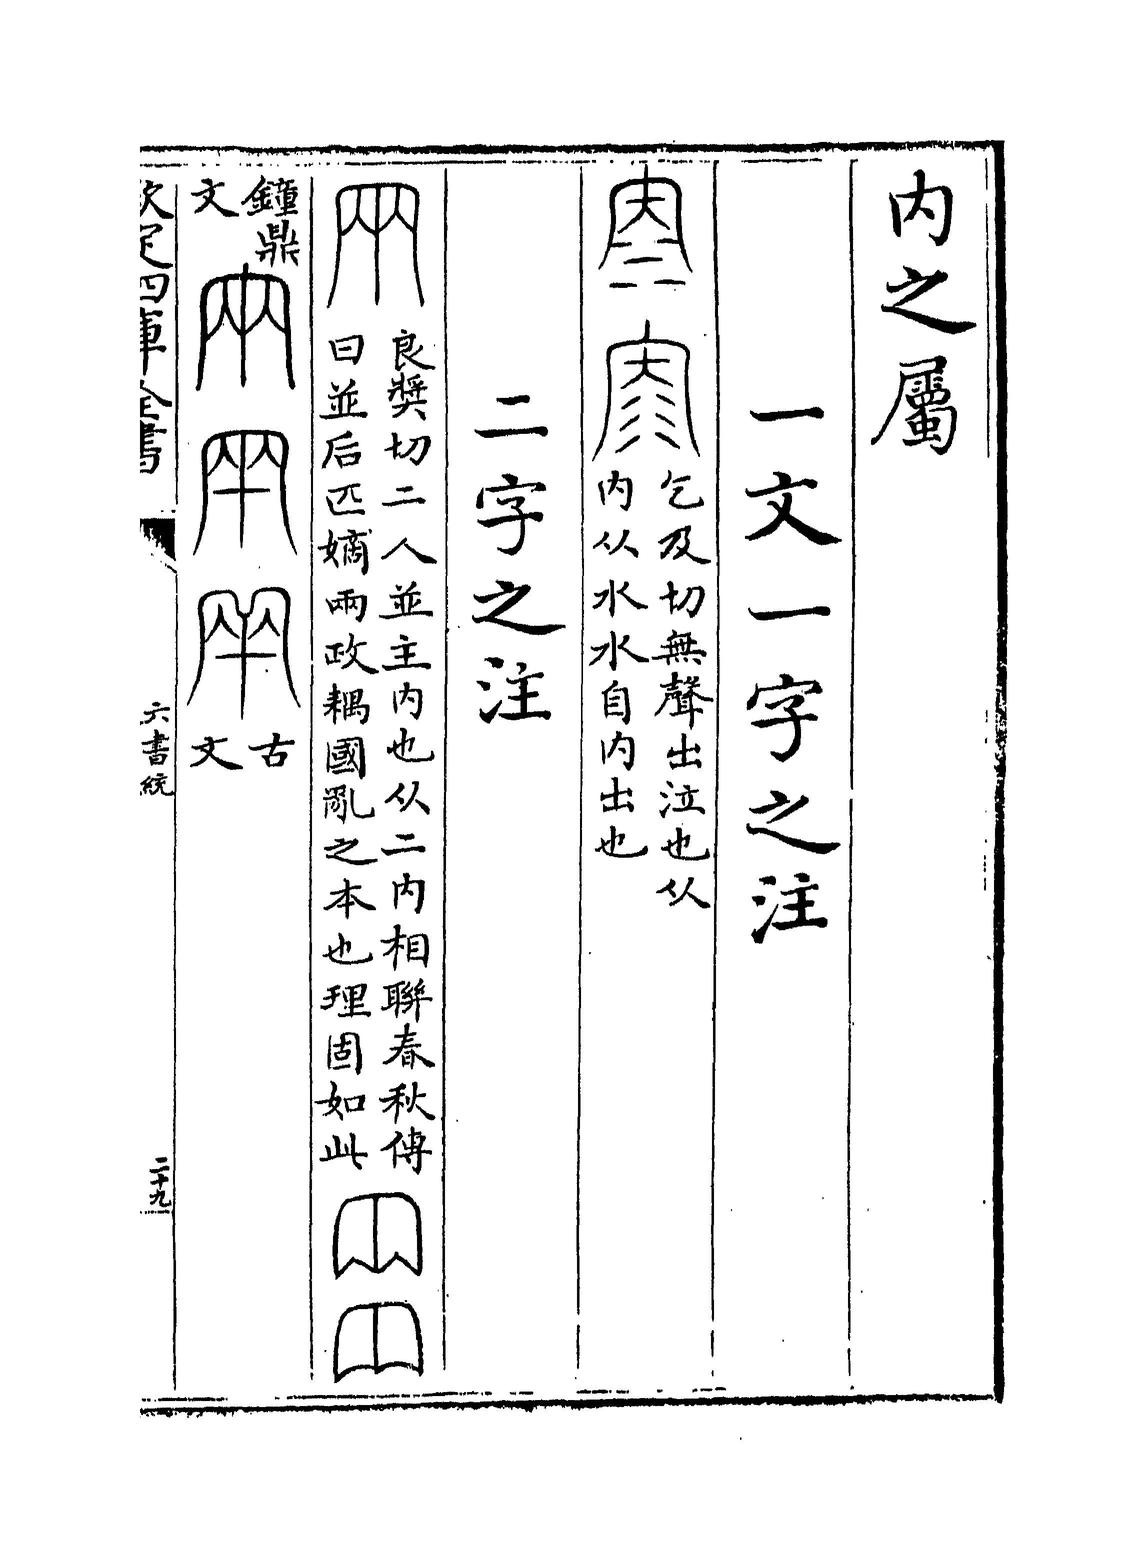 内之屬
一文一字之注
乞及切無聲出泣也从
内从水水自内出也
二字之注
良奬切二人並主内也从二内相聯春秋傳
曰並后匹嫡兩政耦國亂之本也理固如此
鐘鼎
文
古
文
欽定四庫全書
六書統
二十九